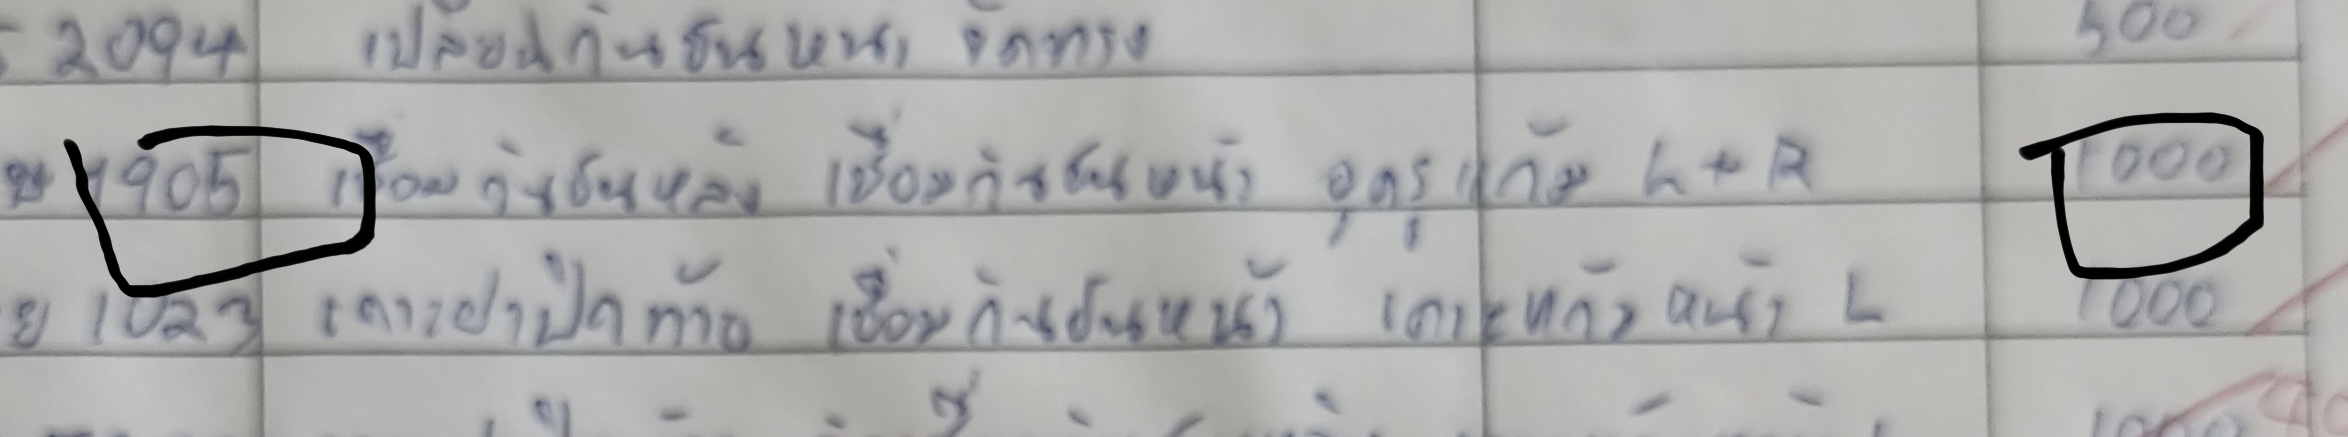 2094 เปลี่ยนกันชนหน้า จัดทรง 500
1905 เชื่อมกันชนหลัง เชื่อมกันชนหน้า อุดรูแก้ม L+R 1000
ย 1023 เคาะฝาปิดท้าย เชื่อมกันชนหน้า เคาะแก้มหน้า L 1000